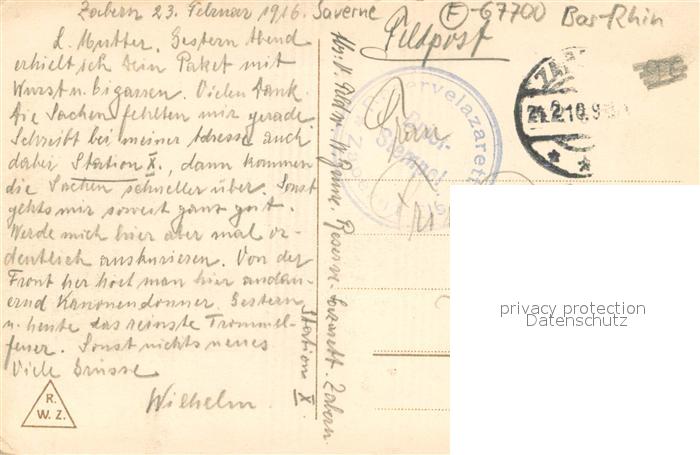 Zabern 23. Februar 1916. Saverne
F-67700 Bas-Rhin
L. Mutter. Gestern Abend
erhielt ich Dein Paket mit
Wurst u. Zigarren. Vielen Dank.
Die Sachen fehlten mir gerade
Schreibt bei meiner Adresse auch
daber Station X., dann kommen
die Sachen schneller über. Sonst
gehts mir soweit ganz gut.
Werde mich hier aber mal or-
dentlich auskurieren. Von der
Front her hört man hier andau-
ernd Kanonendonner. Gestern
u. heute das reinste Trommel-
feuer. Sonst nichts neues
Viele Grüsse
Wilhelm.
R.
W. Z.
Reserve-Lazarett. Zabern
Station X.
Feldpost
Frau
Reservelazarett
Stempel
ZAB
24.2.16.9
privacy protection
Datenschutz